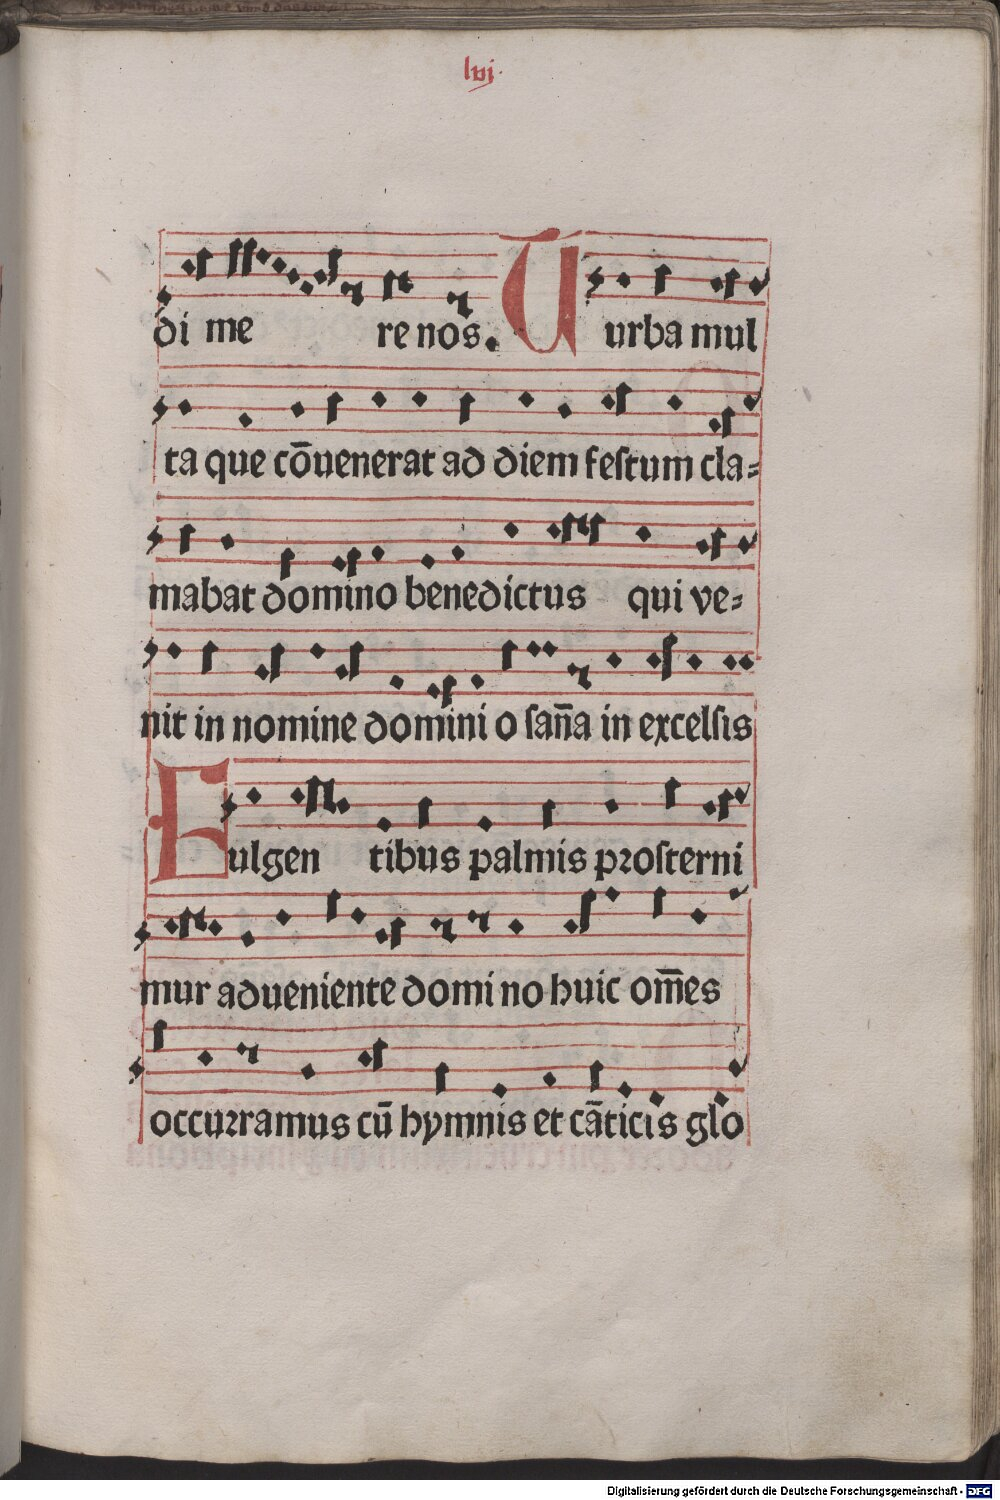 lvj.
di me re nos. T urba mul
ta que cōuenerat ad diem festum cla=
mabat domino benedictus qui ve=
nit in nomine domini o san̄a in excelsis
F ulgen tibus palmis prosterni
mur adueniente domi no huic om̄es
occurramus cū hymnis et cāticis glo
Digitalisierung gefördert durch die Deutsche Forschungsgemeinschaft - DFG